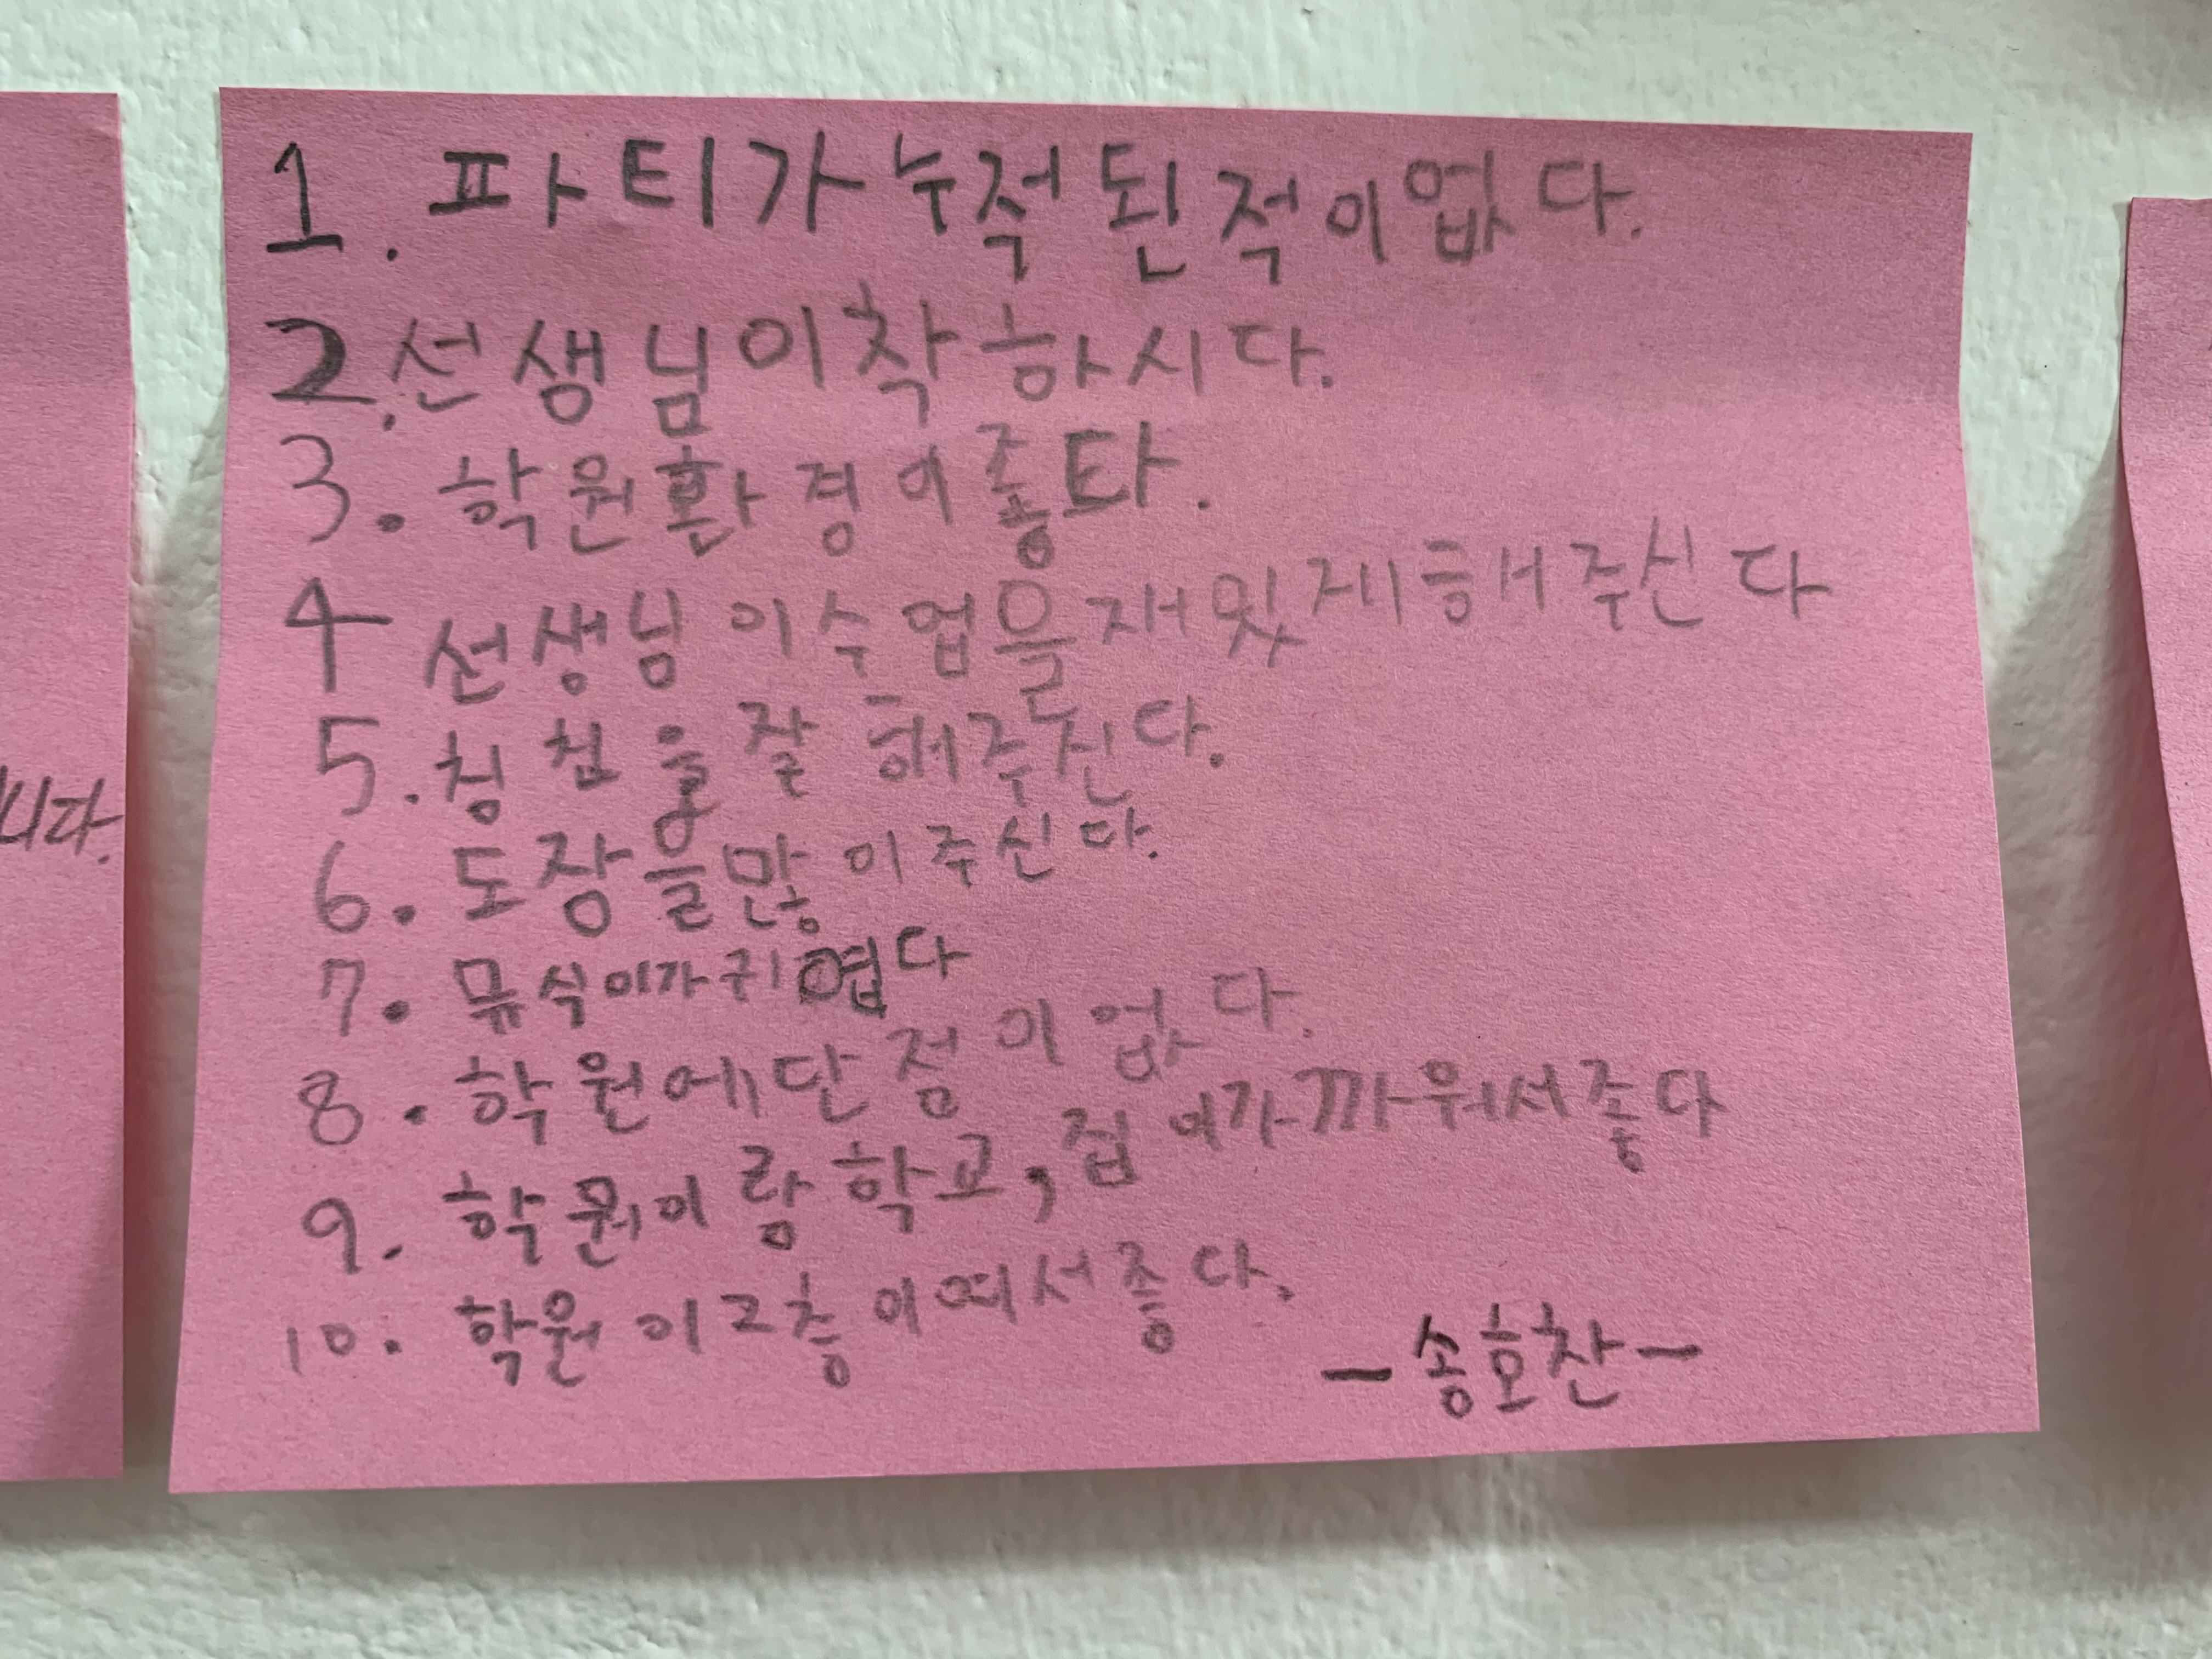 1. 파티가 누적된적이없다.
2. 선생님이착하시다.
3. 학원환경이좋타.
4 선생님이수업을재밌제해주신다
5. 칭찬을잘해주신다.
6. 도장을많이주신다.
7. 뮤식이가귀엽다
8. 학원에단점이없다.
9. 학원이랑학교,집이가까워서좋다
10. 학원이2층이여서좋다.
-송호찬-
니다.